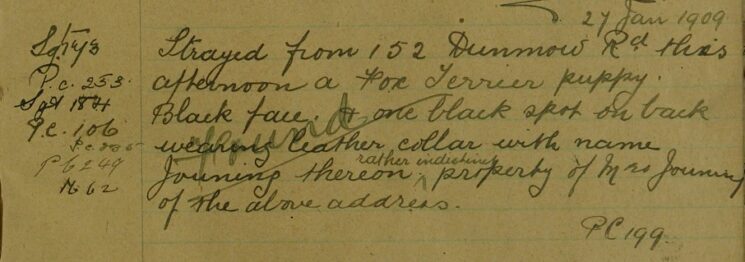 27 Jan 1909
Strayed from 152 Dunmow Rd this
afternoon a Fox Terrier puppy.
Black face. & one black spot on back
found
wearing leather collar with name
rather indistinct
Jouning thereon property of Mrs Jouning
of the above address.
PC 199.
P.c. 253.
Sgt 18
P.c. 106
P.c. 235
Pc 249
62